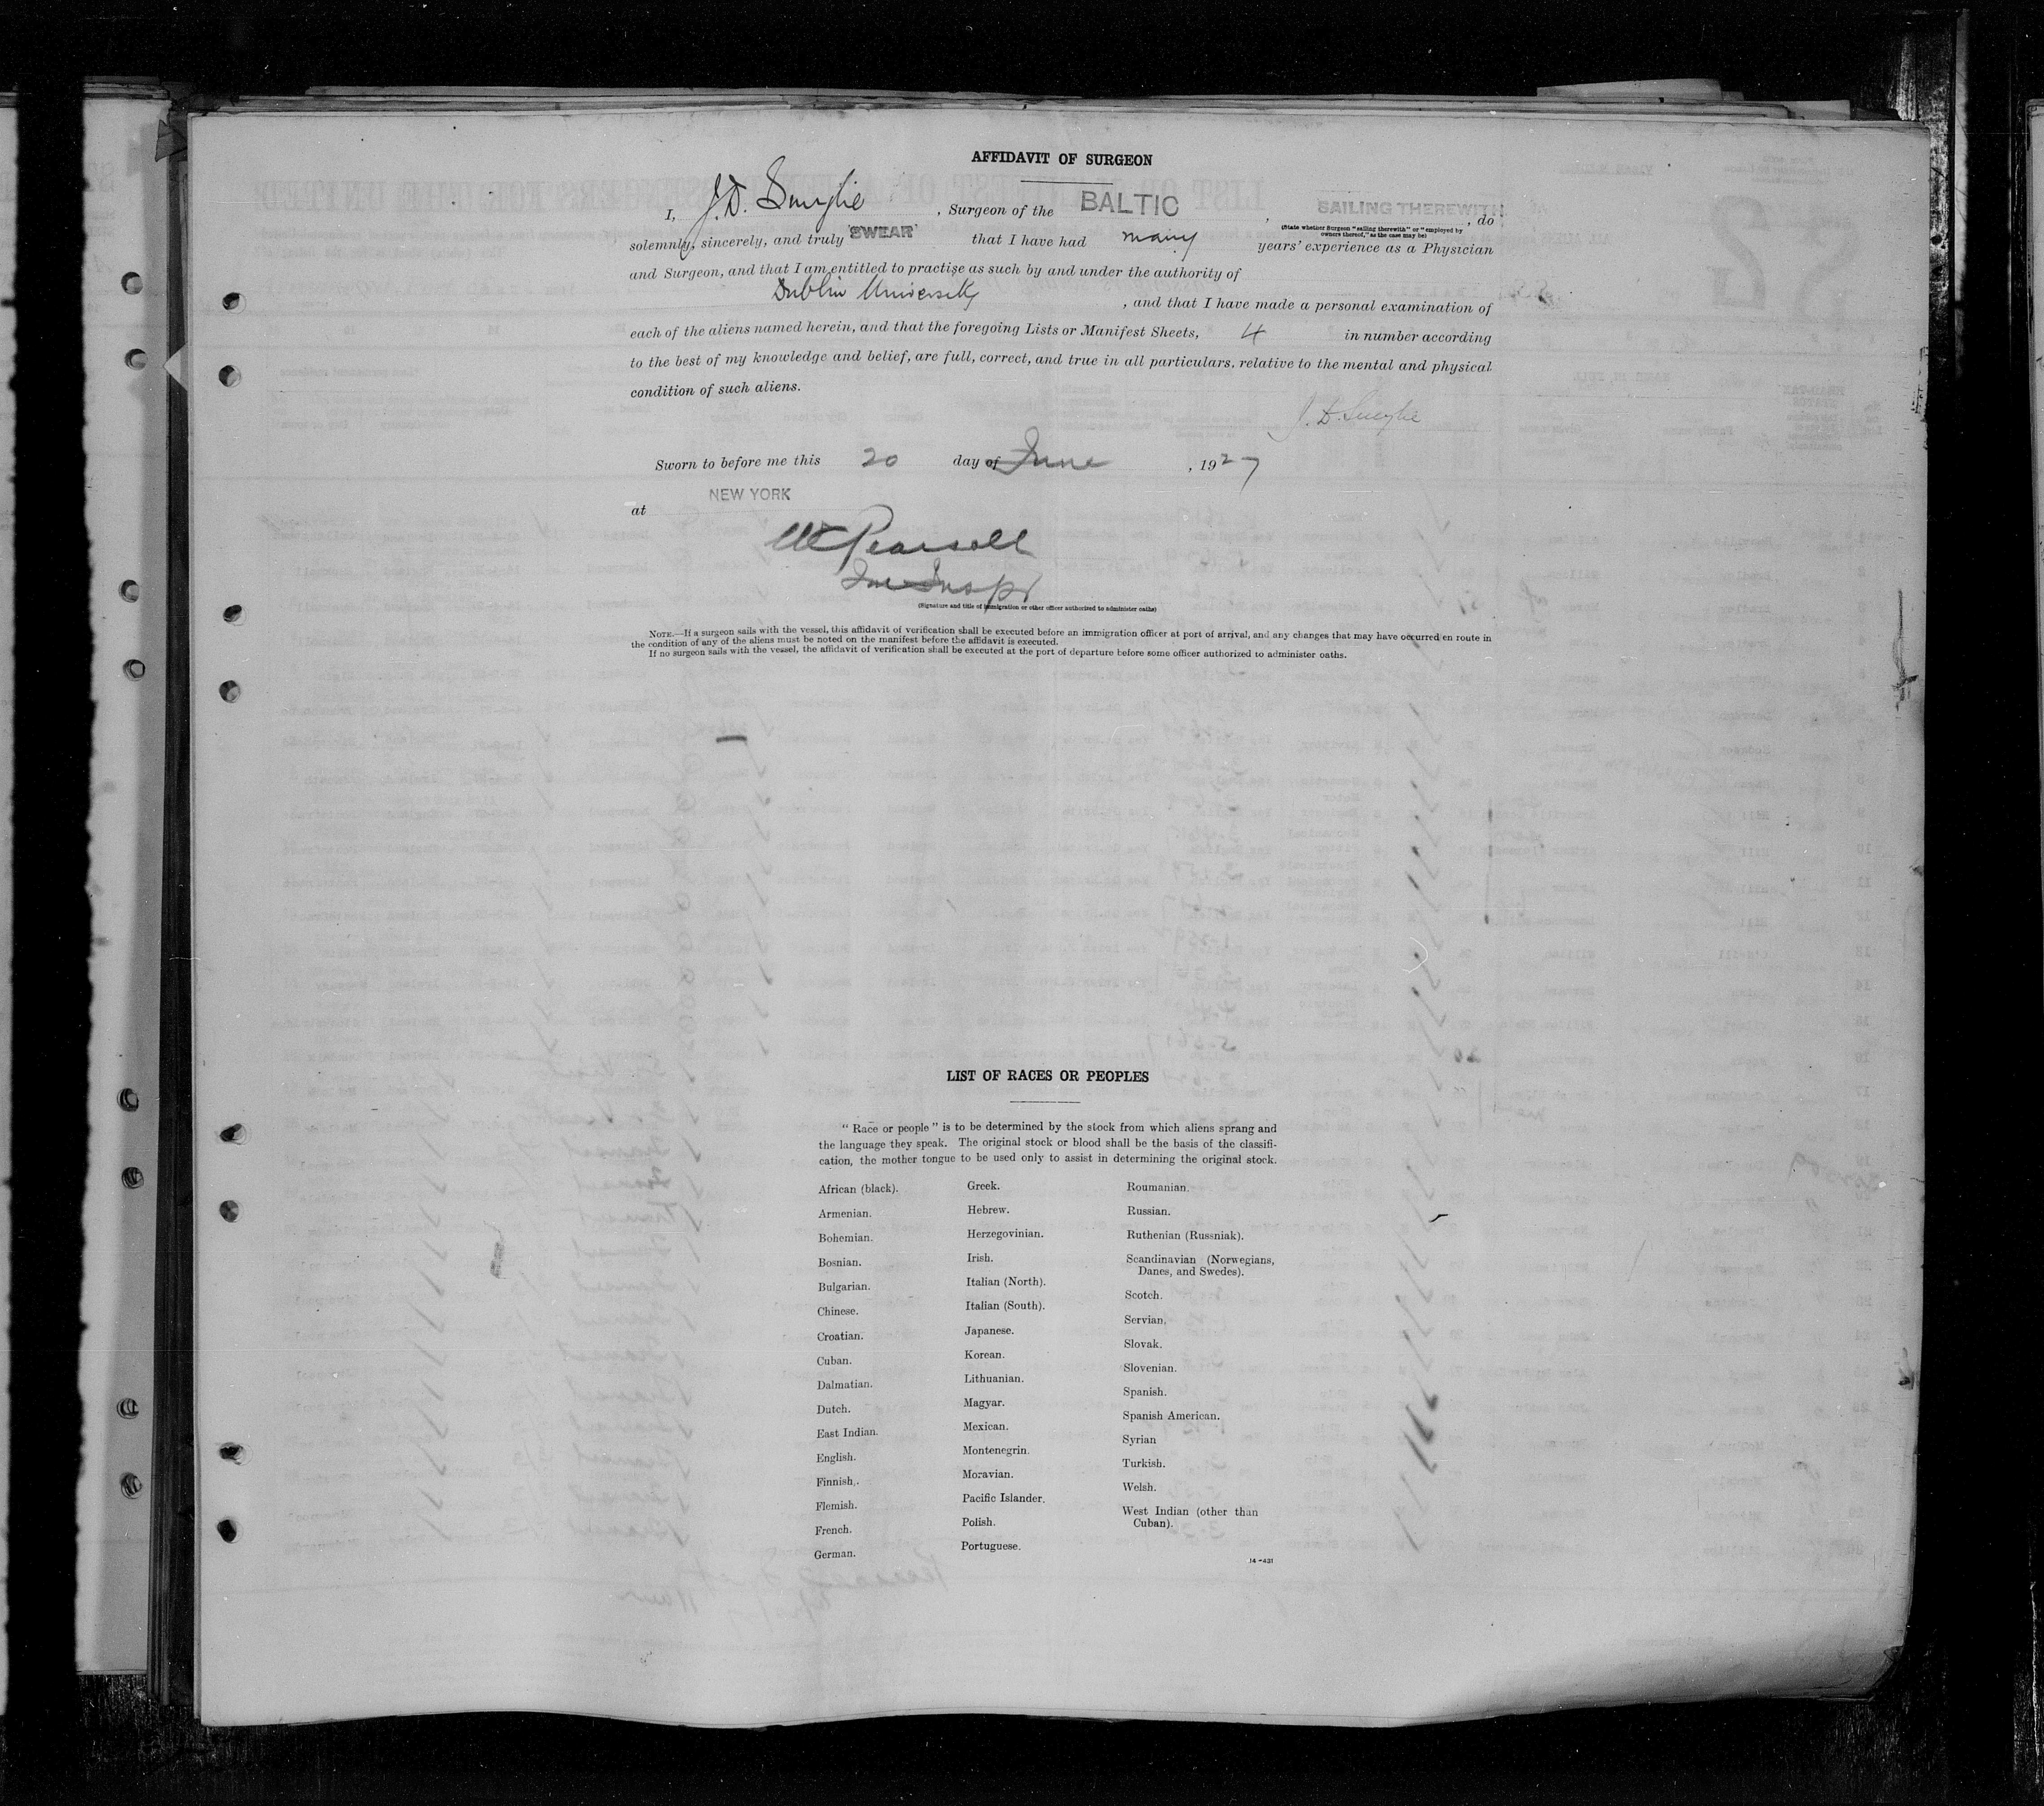 AFFIDAVIT OF SURGEON
I, J. D. , Surgeon of the BALTIC , SAILING THEREWITH , do
(State whether Surgeon "sailing therewith" or "employed by
owners thereof," as the case may be)
solemnly, sincerely, and truly SWEAR that I have had many years' experience as a Physician
and Surgeon, and that I am entitled to practise as such by and under the authority of
Dublin University , and that I have made a personal examination of
each of the aliens named herein, and that the foregoing Lists or Manifest Sheets, 4 in number according
to the best of my knowledge and belief, are full, correct, and true in all particulars, relative to the mental and physical
condition of such aliens.
J. D.
Sworn to before me this 20 day of June , 1927
at NEW YORK
Pearsall
Imm Inspr
(Signature and title of immigration or other officer authorized to administer oaths)
NOTE.—If a surgeon sails with the vessel, this affidavit of verification shall be executed before an immigration officer at port of arrival, and any changes that may have occurred en route in
the condition of any of the aliens must be noted on the manifest before the affidavit is executed.
If no surgeon sails with the vessel, the affidavit of verification shall be executed at the port of departure before some officer authorized to administer oaths.
LIST OF RACES OR PEOPLES
"Race or people" is to be determined by the stock from which aliens sprang and
the language they speak. The original stock or blood shall be the basis of the classifi-
cation, the mother tongue to be used only to assist in determining the original stock.
African (black).
Armenian.
Bohemian.
Bosnian.
Bulgarian.
Chinese.
Croatian.
Cuban.
Dalmatian.
Dutch.
East Indian.
English.
Finnish.
Flemish.
French.
German.
Greek.
Hebrew.
Herzegovinian.
Irish.
Italian (North).
Italian (South).
Japanese.
Korean.
Lithuanian.
Magyar.
Mexican.
Montenegrin.
Moravian.
Pacific Islander.
Polish.
Portuguese.
Roumanian.
Russian.
Ruthenian (Russniak).
Scandinavian (Norwegians,
Danes, and Swedes).
Scotch.
Servian.
Slovak.
Slovenian.
Spanish.
Spanish American.
Syrian
Turkish.
Welsh.
West Indian (other than
Cuban).
14—431